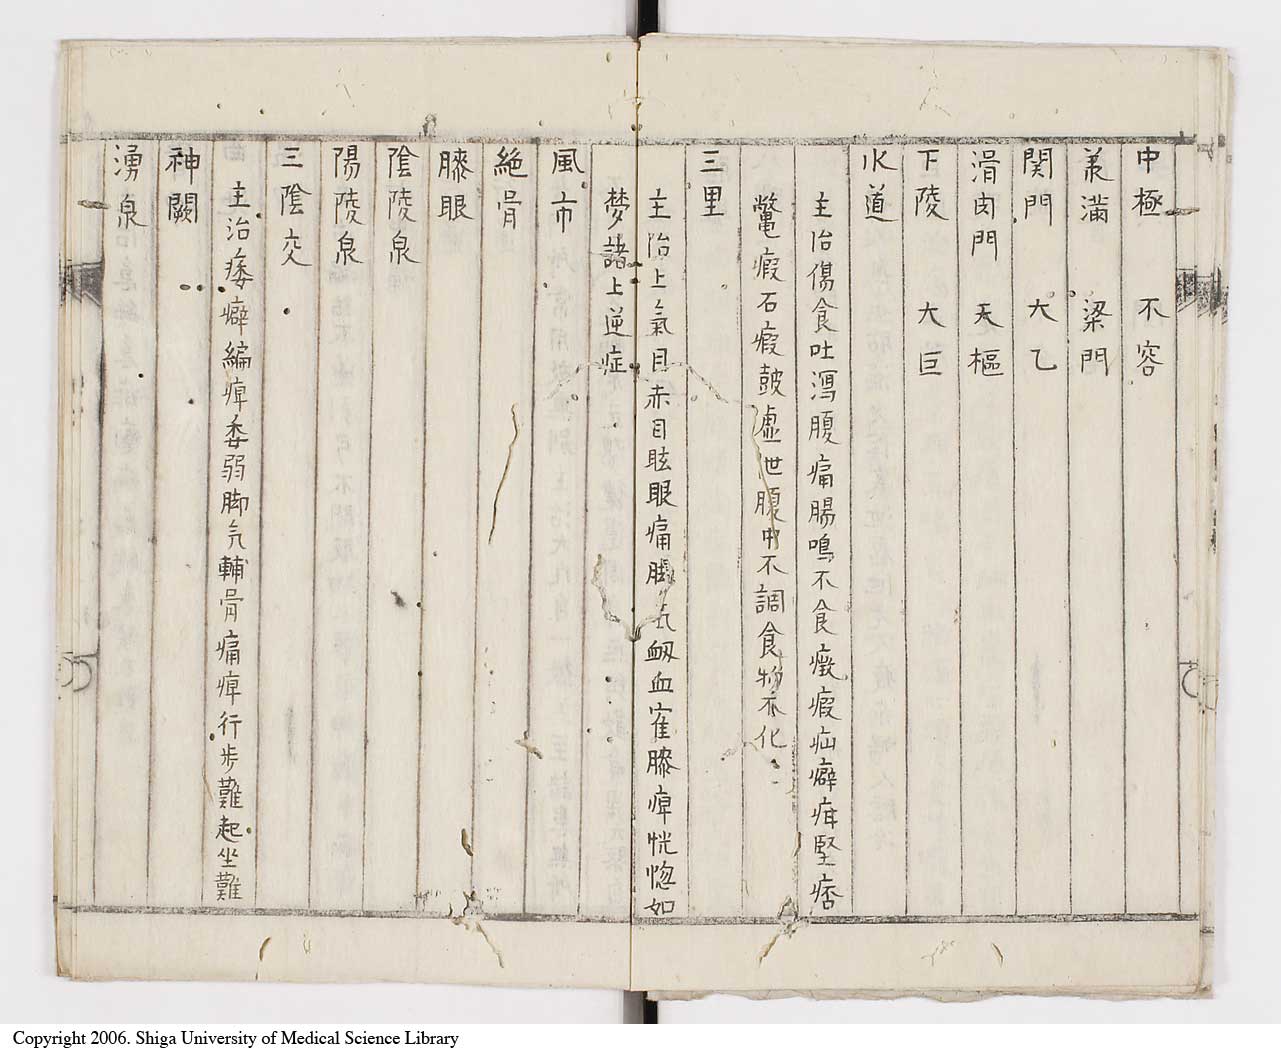 中極　不容
兼滿　梁門
関門　大乙
滑肉門　天樞
下陵　大巨
水道
主治傷食吐瀉腹痛腸鳴不食癥瘕疝癖疳堅痞
鼈瘕石瘕皷虛泄腹中不調食物不化
三里
主治上氣目赤目眩眼痛脚氣衂血寉膝痺恍惚如
夢諸上逆症
風市
絶骨
膝眼
陰陵泉
陽陵泉
三陰交
主治痿癖編痺委弱脚気輔骨痛痺行步難起坐難
神闕
湧泉
Copyright 2006. Shiga University of Medical Science Library